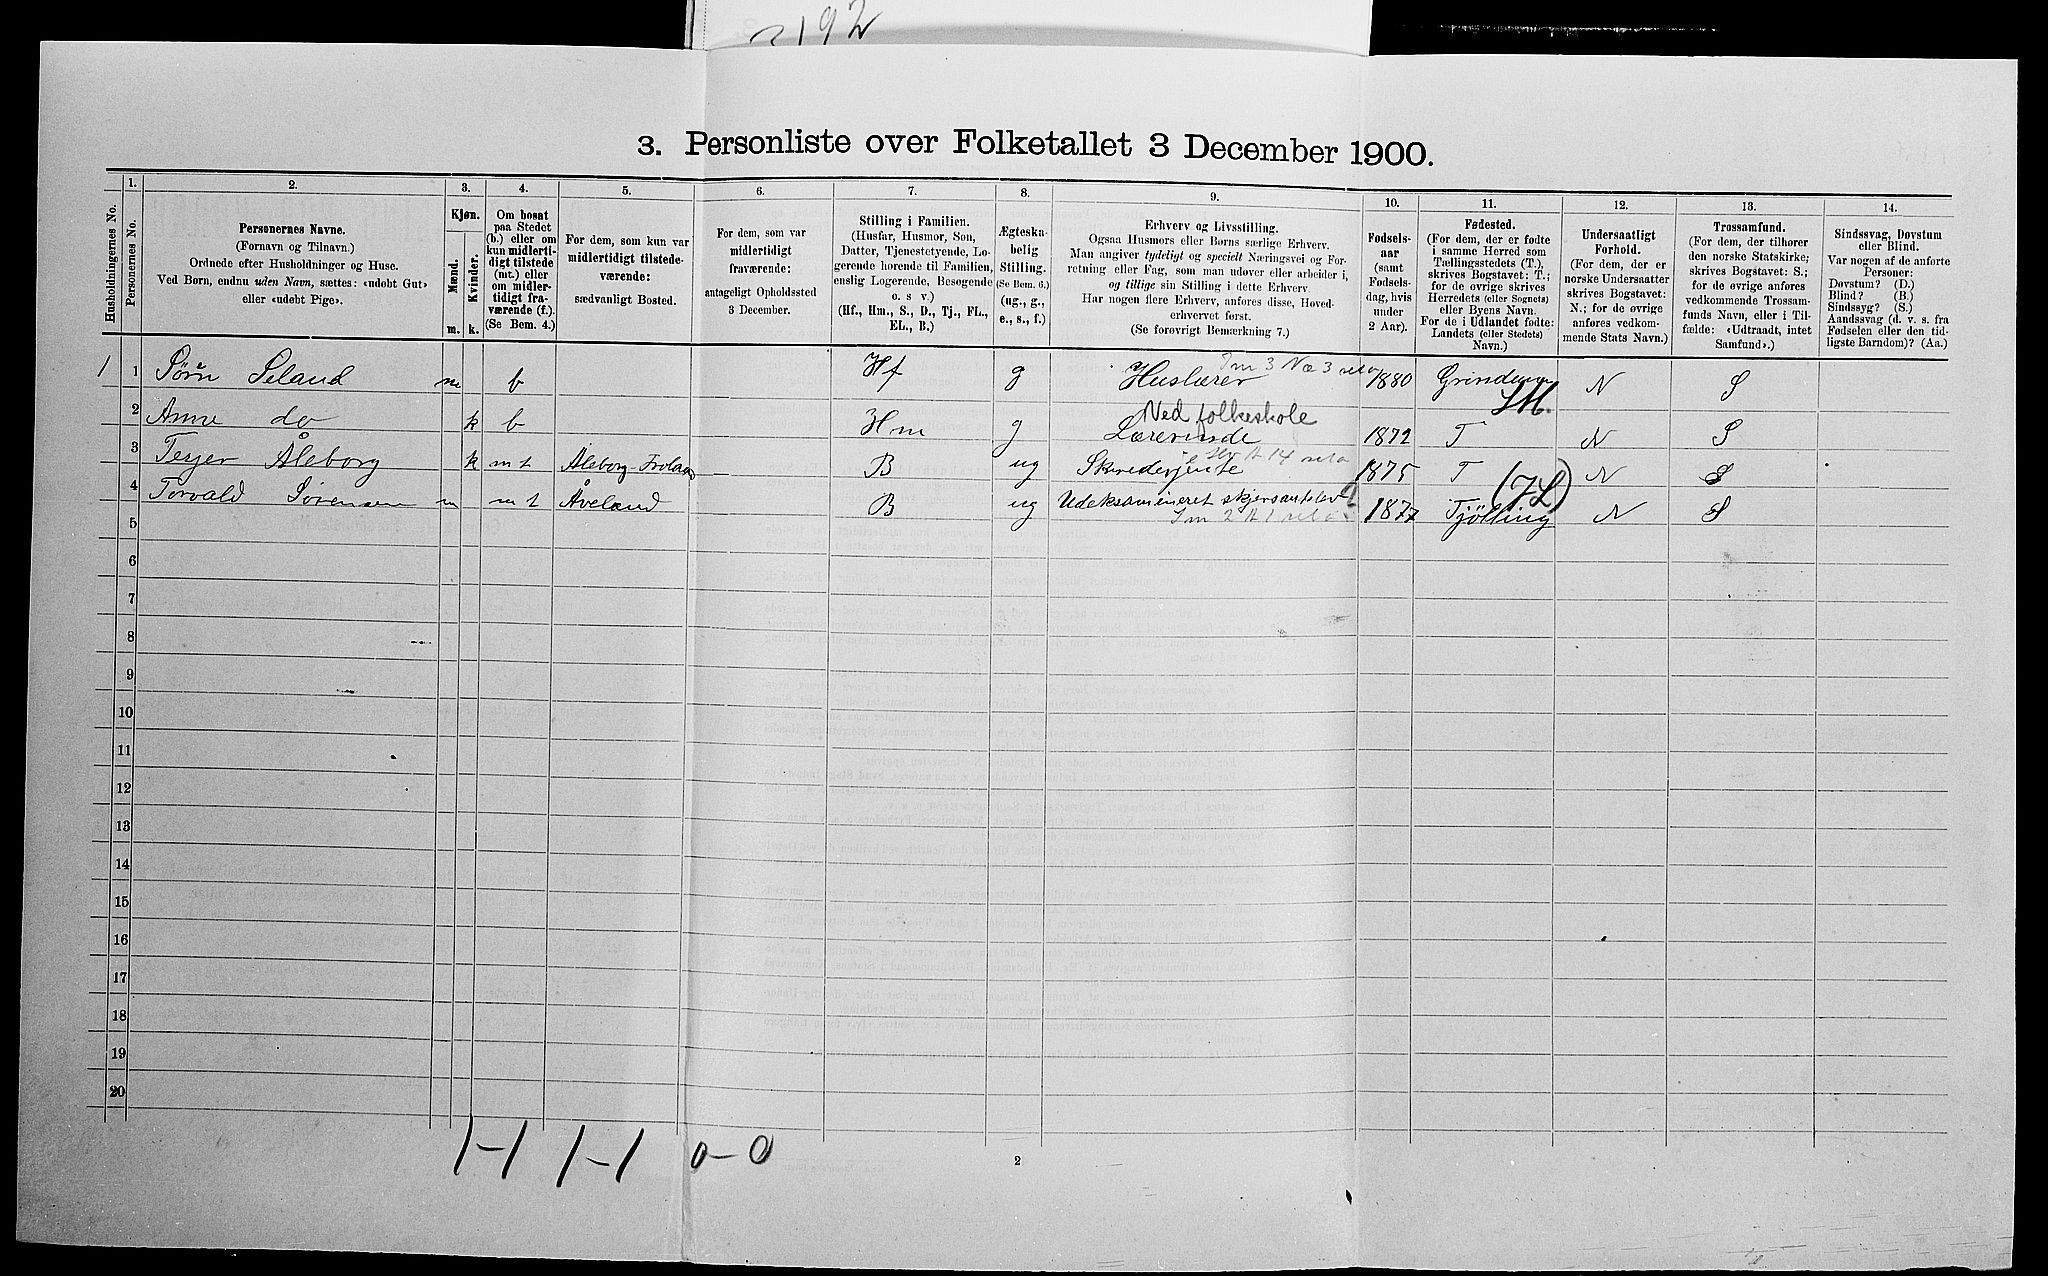 2192
3. Personliste over Folketallet 3 December 1900.
1. 2. 3. 4. 5. 6. 7. 8. 9. 10. 11. 12. 13. 14.
Husholdningernes No.
Personernes No.
Personernes Navne.
(Fornavn og Tilnavn.)
Ordnede efter Husholdninger og Huse.
Ved Børn, endnu uden Navn, sættes: «udøbt Gut»
eller «udøbt Pige».
Kjøn.
Mænd.
Kvinder.
m. k.
Om bosat
paa Stedet
(b.) eller om
kun midlerti-
digt tilstede
(mt.) eller
om midler-
tidigt fra-
værende (f.).
(Se Bem. 4.)
For dem, som kun var
midlertidigt tilstede-
værende:
sædvanligt Bosted.
For dem, som var
midlertidigt
fraværende:
antageligt Opholdssted
3 December.
Stilling i Familien.
(Husfar, Husmor, Søn,
Datter, Tjenestetyende, Lo-
gerende hørende til Familien,
enslig Logerende, Besøgende
o. s v.)
(Hf., Hm., S., D., Tj., FL.,
EL., B.)
Ægteska-
belig
Stilling.
(Se Bem. 6.)
(ug., g.,
e., s., f.)
Erhverv og Livsstilling.
Ogsaa Husmors eller Børns særlige Erhverv.
Man angiver tydeligt og specielt Næringsvei og For-
retning eller Fag, som man udøver eller arbeider i,
og tillige sin Stilling i dette Erhverv.
Har nogen flere Erhverv, anføres disse, Hoved-
erhvervet først.
(Se forøvrigt Bemærkning 7.)
Fødsels-
aar
(samt
Fødsels-
dag, hvis
under
2 Aar).
Fødested.
(For dem, der er fødte
i samme Herred som
Tællingsstedets (T.),
skrives Bogstavet: T.;
for de øvrige skrives
Herredets (eller Sognets)
eller Byens Navn.
For de i Udlandet fødte:
Landets (eller Stedets)
Navn.)
Undersaatligt
Forhold.
(For dem, der er
norske Undersaatter
skrives Bogstavet:
N.; for de øvrige
anføres vedkom-
mende Stats Navn.)
Trossamfund.
(For dem, der tilhører
den norske Statskirke;
skrives Bogstavet: S.;
for de øvrige anføres
vedkommende Trossam-
funds Navn, eller i Til-
fælde: «Udtraadt, intet
Samfund».)
Sindssvag, Døvstum
eller Blind.
Var nogen af de anførte
Personer:
Døvstum? (D.)
Blind? (B.)
Sindssyg? (S.)
Aandssvag (d. v. s. fra
Fødselen eller den tid-
ligste Barndom)? (Aa.)
1 1 Sørn Seland m b Hf g Huslærer 1880 N S
2 Anne do k b Hm g Lærerinde 1872 T N S
Ned folkeskole
3 Terjer Åleborg k mt B ug 1875 T N S
4 Torvald Sørensen m mt Åveland B ug 1877 (JL) Tjølling N S
5
6
7
8
9
10
11
12
13
14
15
16
17
18
19
20
1-1 1-1 0-0
2